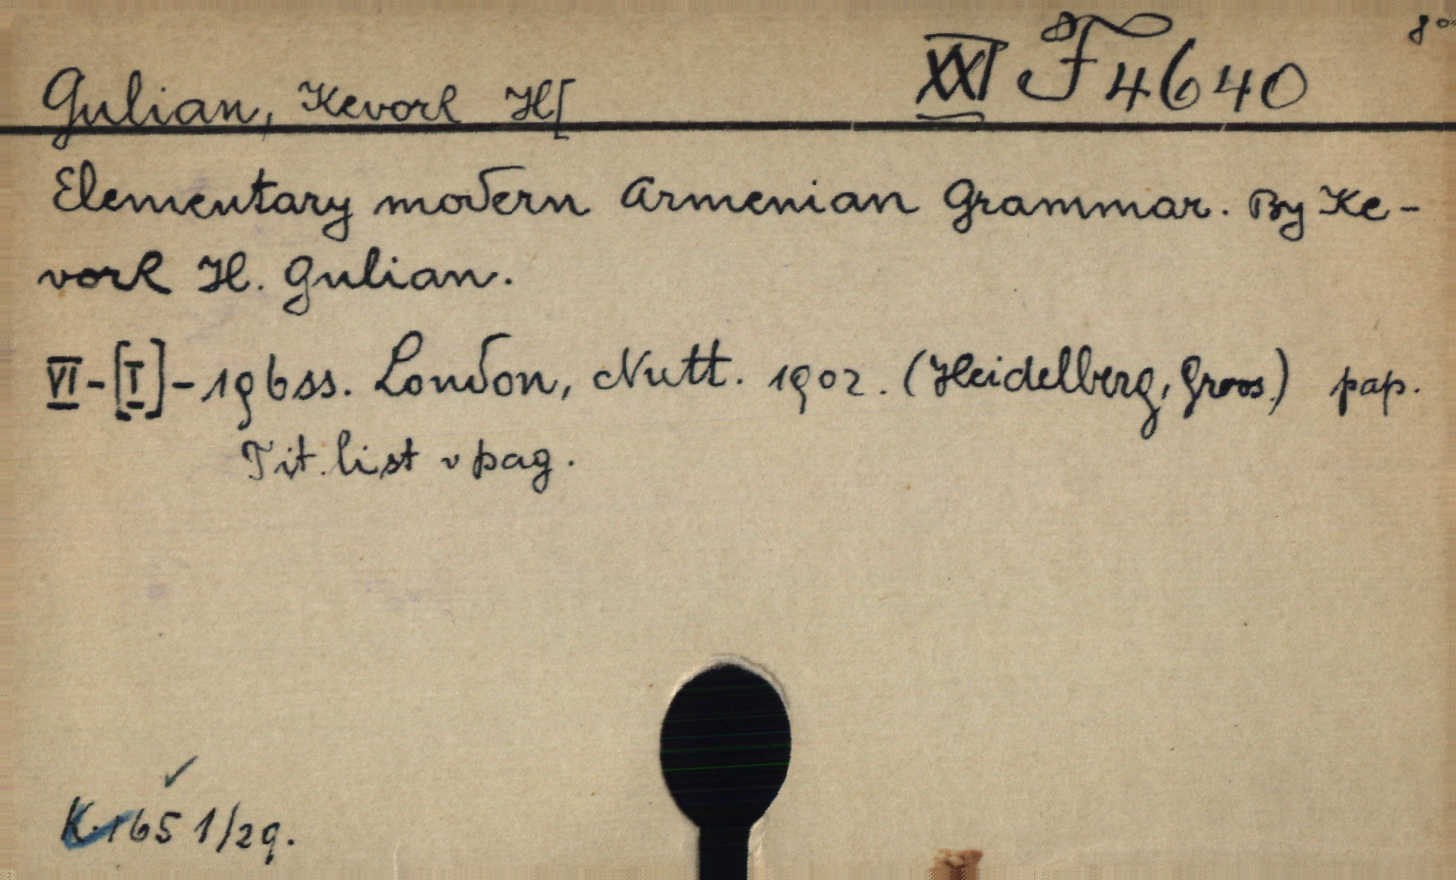 8°
XXI F 4640
Gulian, Kevork H[
Elementary modern Armenian Grammar. By Ke-
vork H. Gulian.
VI-[I]-196ss. London, Nutt. 1902. (Heidelberg, Groos.) pap.
Tit. list v pag.
K.1651/29.